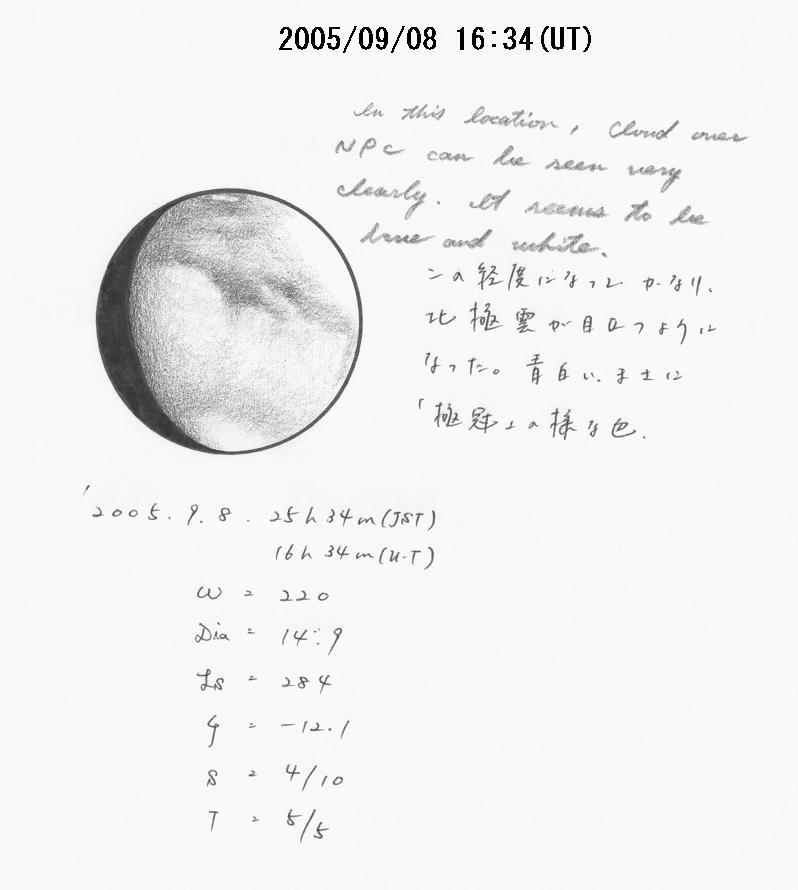 2005/09/08 16:34(UT)
In this location, cloud over
NPC can be seen very
clearly. It seems to be
blue and white.
この経度になって かなり、
北極雲が目立つように
なった。青白い、まさに
「極冠」の様な色.
'2005. 9. 8. 25h 34m (JST)
16h 34m (U.T)
ω = 220
Dia = 14".9
Ls = 284
φ = -12.1
S = 4/10
T = 5/5